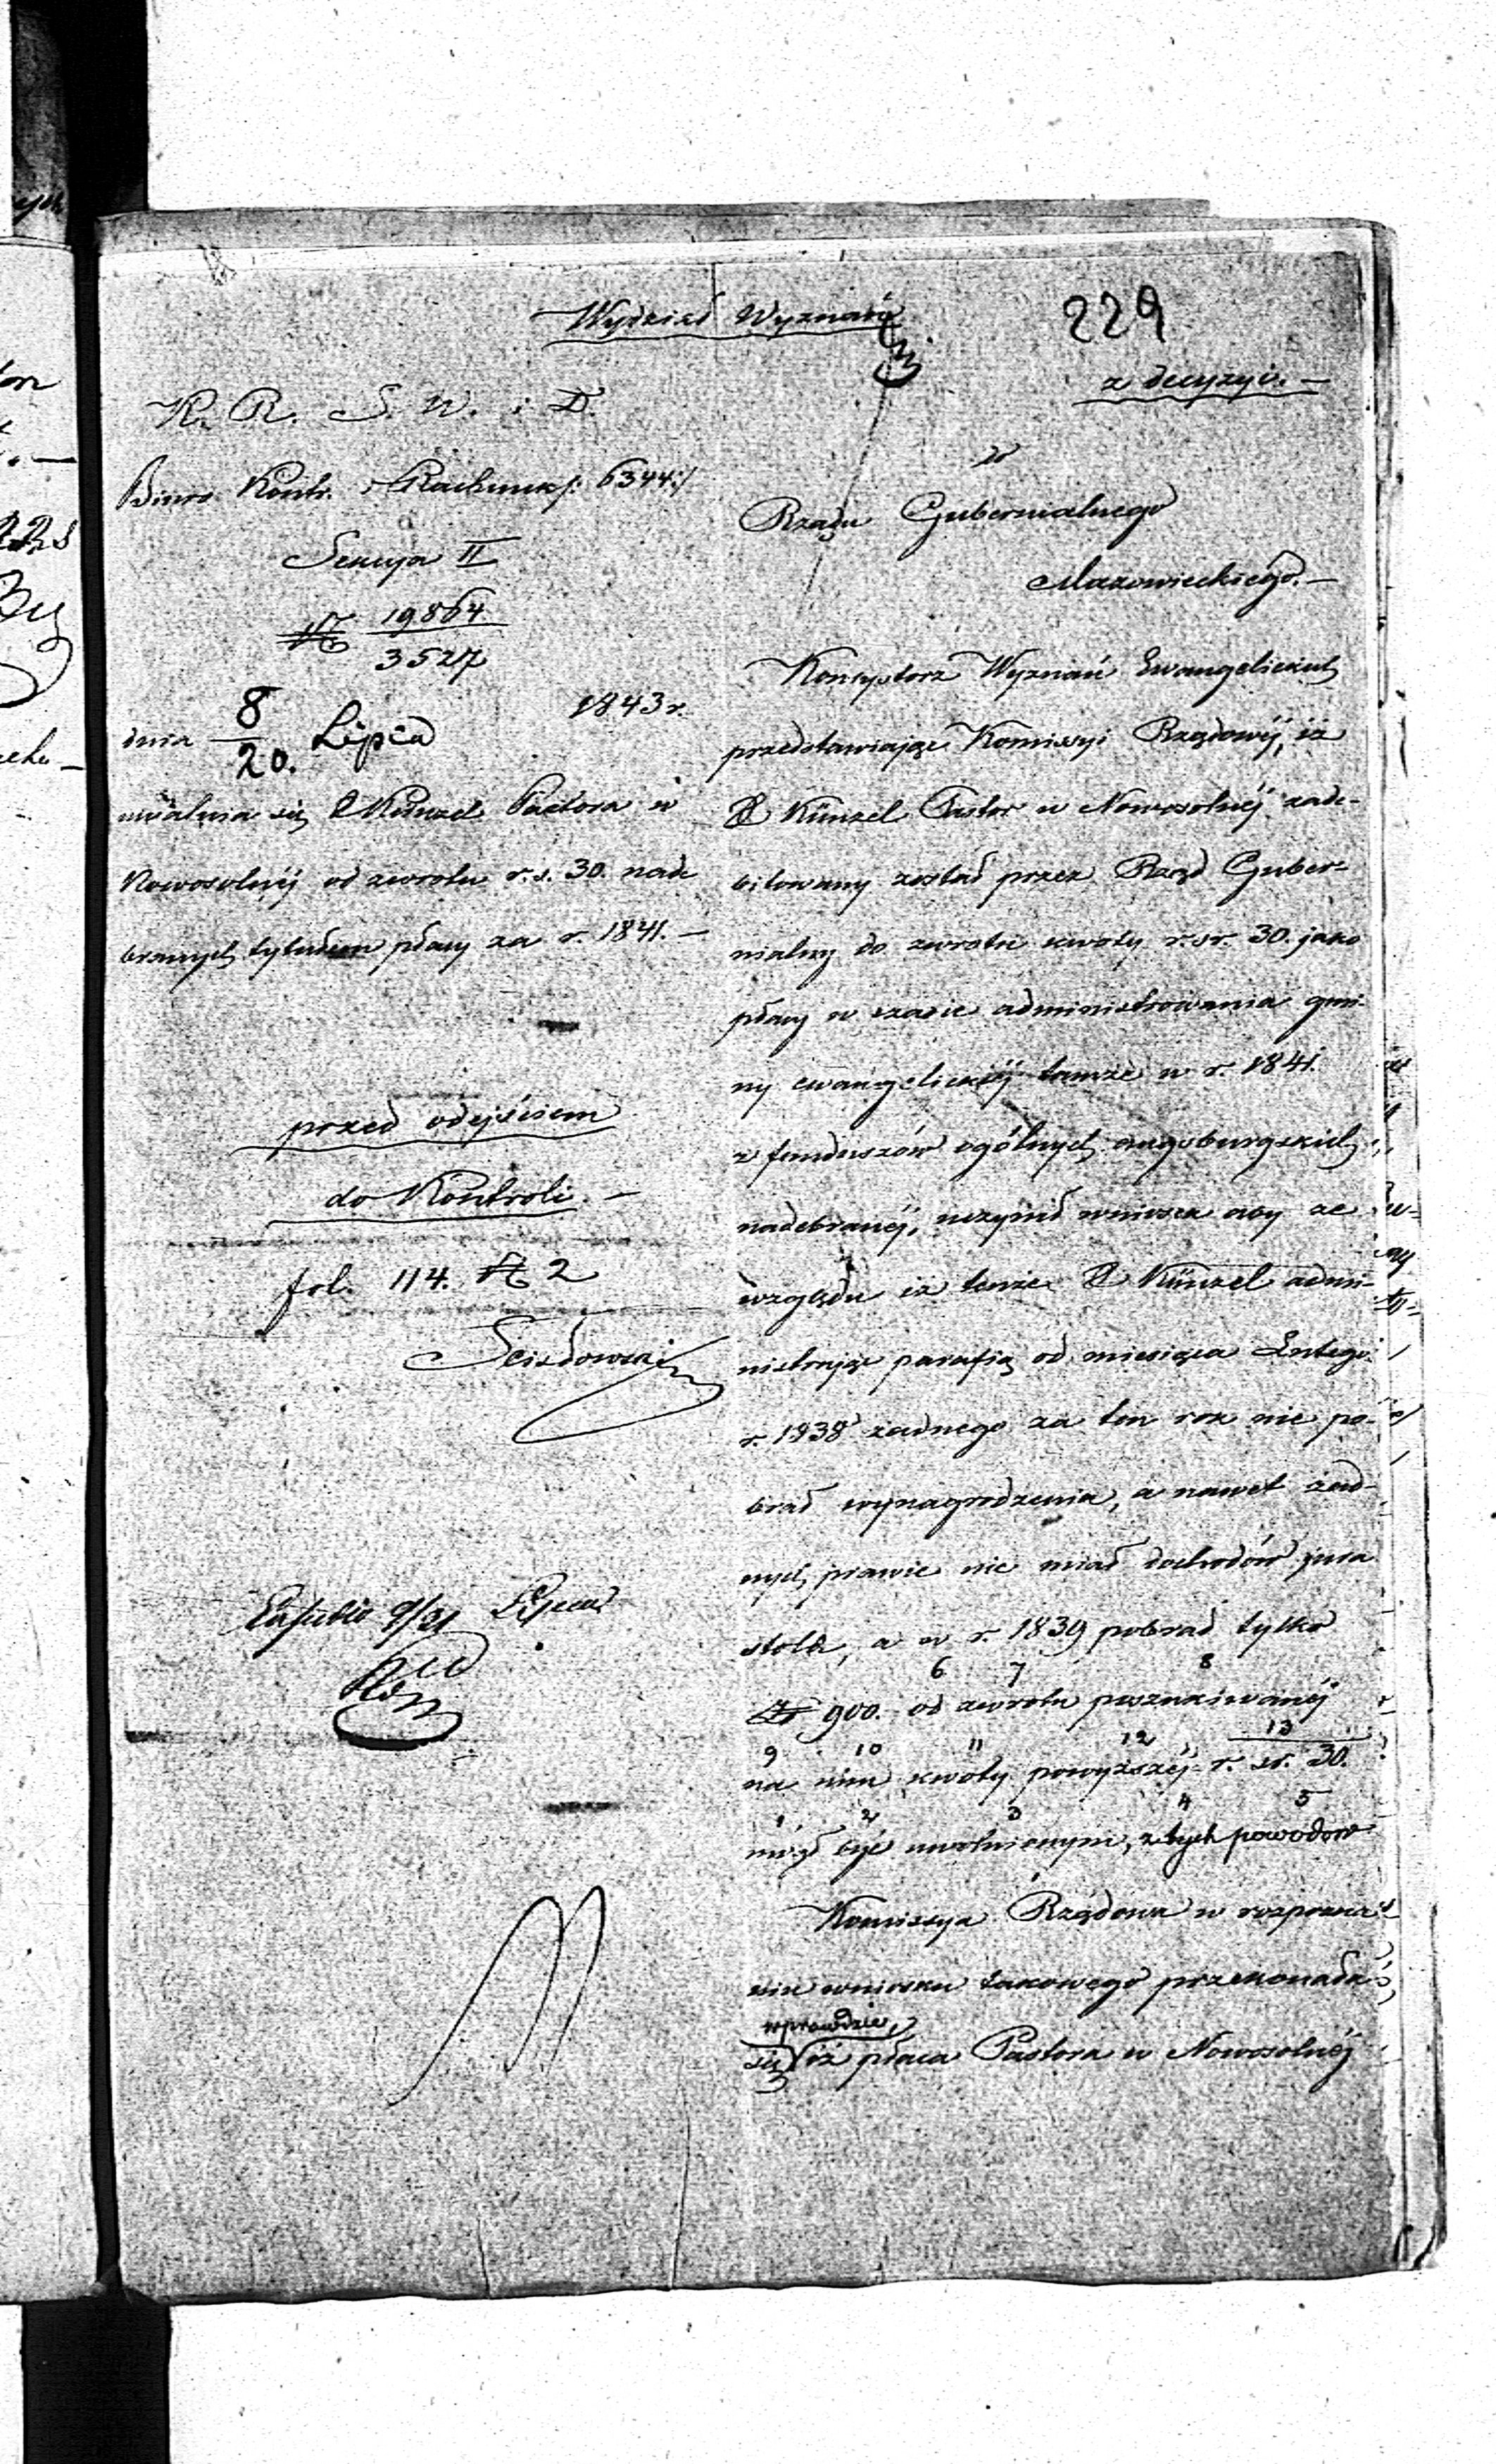 229
Wydział Wyznań
z decyzyi. —
K. R. S. W. i D.
Biuro Kontr. i Rachunk /: 6344 :/
Sekcya II
№ 19864
3527
dnia 8/20. Lipca 1843 r.
uwalnia się X Künzel Pastora w
Nowosolnéj od zwrotu r. s. 30. nade
branych tytułem płacy za r. 1841. —
przed odejściem
do Kontroli. —
fol. 114. № 2
9/21 Lipca
do
Rządu Gubernialnego
Mazowieckiego. —
Konsystorz Wyznań Ewangelickich
przedstawiając Komissyi Rządowéj, iż
X Künzel Pastor w Nowosolnéj zade-
bitowany został przez Rząd Guber-
nialny do zwrotu kwoty r. sr. 30. jako
płacy w czasie administrowania gmi-
ny ewangelickiéj tamże w r. 1841.
z funduszów ogólnych augsburgskich
nadebranéj, uczynił wniosek aby ze
względu iż tenże X Künzel admi-
nistrując parafią od miesiąca Lutego
r. 1838 żadnego za ten rok nie po-
brał wynagrodzenia, a nawet żad-
nych prawie nie miał dochodów jura
stolæ, a w r. 1839 pobrał tylko
6 7 8
Zł 900. od zwrotu poszukiwanéj
9 10 11 12 13
na nim kwoty powyższéj r. sr. 30.
1 2 3 4 5
mógł być uwolnionym, z tych powodów
Komissya Rządowa w rozpozna
niu wniosku takowego przekonała
wprawdzie,
się iż płaca Pastora w Nowosolnéj